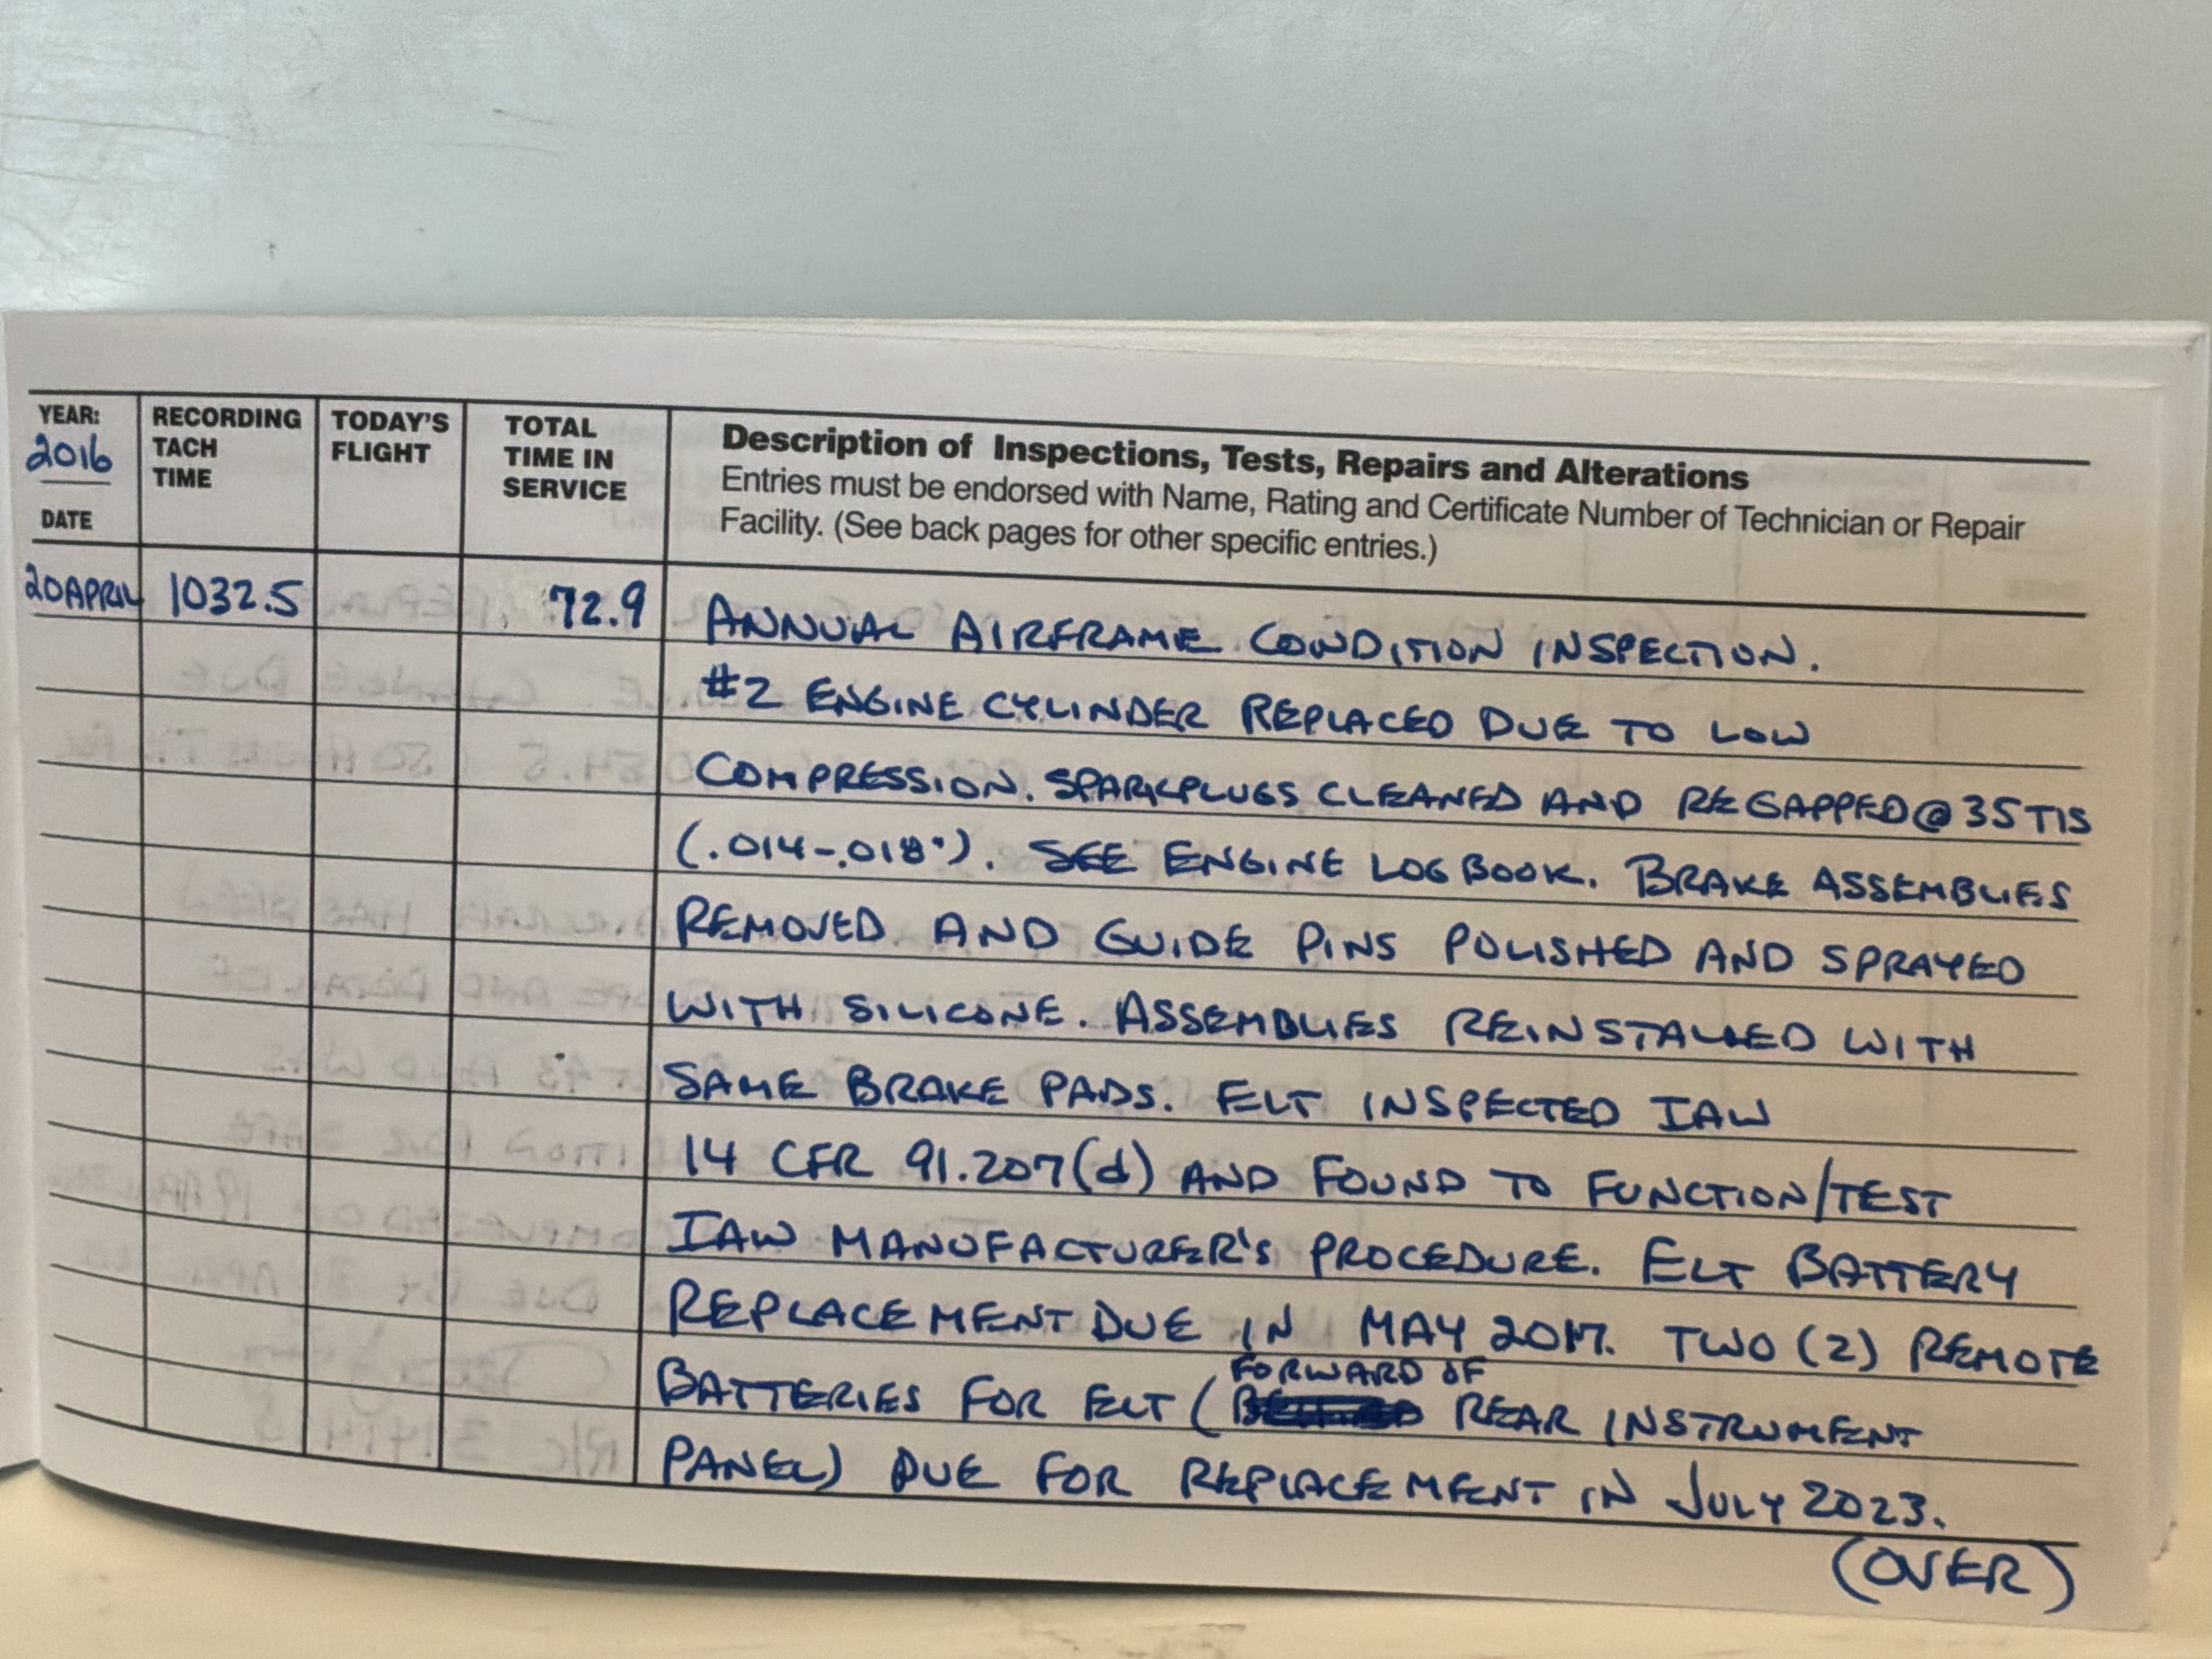 YEAR:
2016
DATE
RECORDING
TACH
TIME
TODAY'S
FLIGHT
TOTAL
TIME IN
SERVICE
Description of Inspections, Tests, Repairs and Alterations
Entries must be endorsed with Name, Rating and Certificate Number of Technician or Repair
Facility. (See back pages for other specific entries.)
20APRIL 1032.5 72.9 ANNUAL AIRFRAME CONDITION INSPECTION.
#2 ENGINE CYLINDER REPLACED DUE TO LOW
COMPRESSION. SPARKPLUGS CLEANED AND REGAPPED@35TIS
(.014-.018"). SEE ENGINE LOGBOOK. BRAKE ASSEMBLIES
REMOVED AND GUIDE PINS POLISHED AND SPRAYED
WITH SILICONE. ASSEMBLIES REINSTALLED WITH
SAME BRAKE PADS. ELT INSPECTED IAW
14 CFR 91.207(d) AND FOUND TO FUNCTION/TEST
IAW MANUFACTURER'S PROCEDURE. ELT BATTERY
REPLACEMENT DUE IN MAY 2017. TWO (2) REMOTE
FORWARD OF
BATTERIES FOR ELT ( REAR INSTRUMENT
PANEL) DUE FOR REPLACEMENT IN JULY 2023.
(OVER)